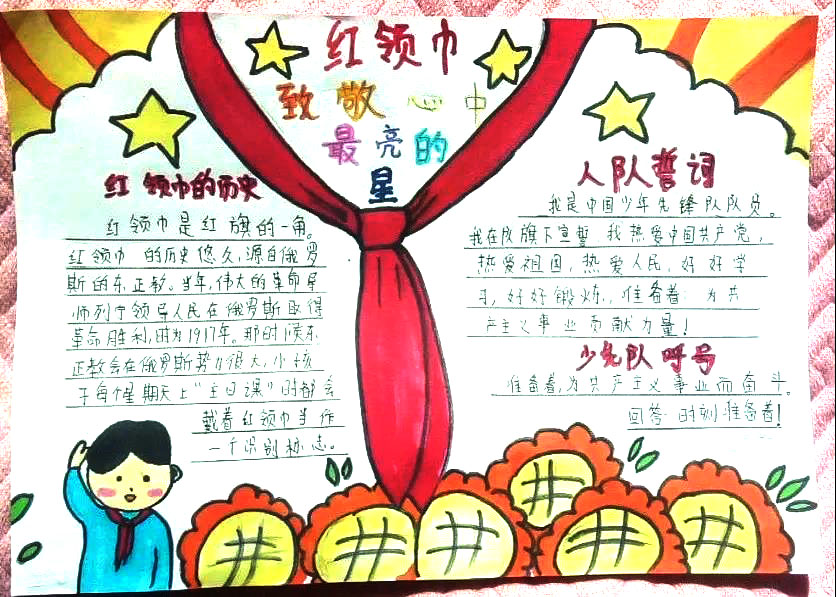 红领巾
致敬心中
最亮的
星
红领巾的历史
红领巾是红旗的一角。
红领巾的历史悠久,源自俄罗
斯的东正教。当年,伟大的革命导
师列宁领导人民在俄罗斯取得
革命胜利,时为1917年。那时候东
正教会在俄罗斯势力很大,小孩
子每个星期天上“主日课”时都会
戴着红领巾当作
一个识别标志。
入队誓词
我是中国少年先锋队队员。
我在队旗下宣誓 我热爱中国共产党,
热爱祖国,热爱人民,好好学
习,好好锻炼,准备着 为共
产主义事业贡献力量!
少先队呼号
准备着,为共产主义事业而奋斗。
回答 时刻准备着!